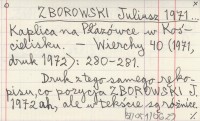 ZBOROWSKI Juliusz 1971...
Kaplica na Płazówce w Koś-
cielisku. — Wierchy 40 (1971,
druk 1972): 280-281.
Druk z tego samego ręko-
pisu, co pozycja ZBOROWSKI J.
1972ah, ale w tekście są różnice.